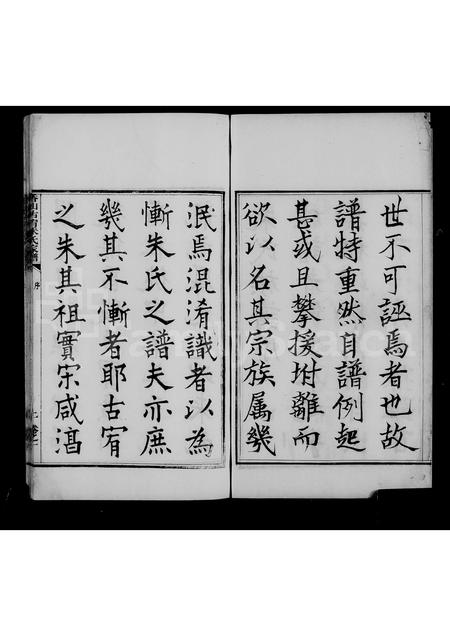 世不可誣焉者也故
譜特重然自譜例起
甚或且攀援坿離而
欲以名其宗族屬幾
泯焉混淆識者以為
慚朱氏之譜夫亦庶
幾其不慚者耶古宥
之朱其祖實宋咸湛
序